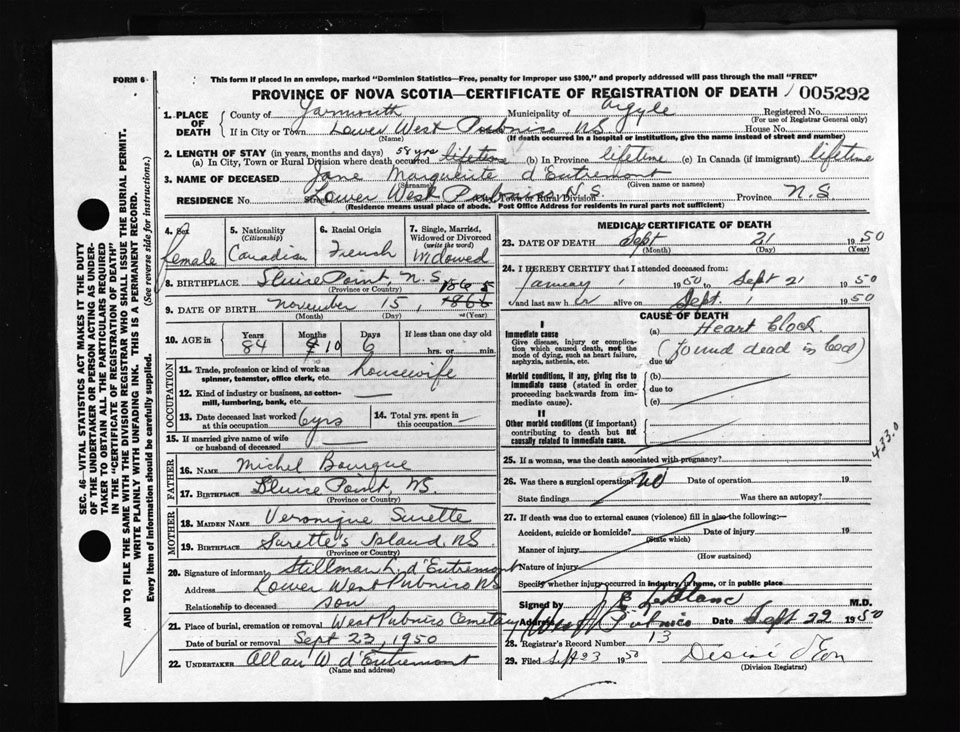 FORM 6
This form if placed in an envelope, marked "Dominion Statistics—Free, penalty for improper use $300," and properly addressed will pass through the mail "FREE"
PROVINCE OF NOVA SCOTIA—CERTIFICATE OF REGISTRATION OF DEATH 005292
1. PLACE OF DEATH County of Yarmouth Municipality of Argyle Registered No.
(For use of Registrar General only)
If in City or Town Lower West Pubnico, N.S. House No.
(Name) (If death occurred in a hospital or institution, give the name instead of street and number)
2. LENGTH OF STAY (in years, months and days) 58 yrs
(a) In City, Town or Rural Division where death occurred lifetime (b) In Province lifetime (c) In Canada (if immigrant) lifetime
3. NAME OF DECEASED Jane Marguerite d'Entremont
(Surname) (Given name or names)
RESIDENCE No. Street Lower West Pubnico, N.S. Town or Rural Division Province N.S.
(Residence means usual place of abode. Post Office Address for residents in rural parts not sufficient)
4. Sex female
5. Nationality (Citizenship) Canadian
6. Racial Origin French
7. Single, Married, Widowed or Divorced (write the word) Widowed
8. BIRTHPLACE Sluice Point, N.S.
(Province or County)
9. DATE OF BIRTH November 15, 1865 1866
(Month) (Day) (Year)
10. AGE in Years 84 Months 10 Days 6 If less than one day old hrs. or min.
OCCUPATION
11. Trade, profession or kind of work as spinner, teamster, office clerk, etc. housewife
12. Kind of industry or business, as cotton-mill, lumbering, bank, etc. —
13. Date deceased last worked at this occupation 6 yrs
14. Total yrs. spent in this occupation —
15. If married give name of wife or husband of deceased —
FATHER
16. NAME Michel Bourque
17. BIRTHPLACE Sluice Point, NS.
(Province or Country)
MOTHER
18. MAIDEN NAME Veronique Surette
19. BIRTHPLACE Surette's Island, NS
(Province or Country)
20. Signature of informant Stillman L. d'Entremont
Address Lower West Pubnico NS
Relationship to deceased son
21. Place of burial, cremation or removal West Pubnico Cemetary
Date of burial or removal Sept 23, 1950
22. UNDERTAKER Allan W d'Entremont
(Name and address)
MEDICAL CERTIFICATE OF DEATH
23. DATE OF DEATH Sept 21 1950
(Month) (Day) (Year)
24. I HEREBY CERTIFY that I attended deceased from:
January 1 1950 to Sept 21 1950
and last saw her alive on Sept. 1 1950
CAUSE OF DEATH
I
Immediate cause
Give disease, injury or complication which caused death, not the mode of dying, such as heart failure, asphyxia, asthenia, etc.
(a) Heart block
(found dead in bed)
due to
Morbid conditions, if any, giving rise to immediate cause (stated in order proceeding backwards from immediate cause).
(b)
due to
(c)
II
Other morbid conditions (if important) contributing to death but not causally related to immediate cause.
433.0
25. If a woman, was the death associated with pregnancy?
26. Was there a surgical operation? No Date of operation 19
State findings Was there an autopsy?
27. If death was due to external causes (violence) fill in also the following:—
Accident, suicide or homicide? Date of injury 19
(State which)
Manner of injury
(How sustained)
Nature of injury
Specify whether injury occurred in industry, in home, or in public place
Signed by E LeBlanc M.D.
Address West Pubnico Date Sept 22 1950
28. Registrar's Record Number 13
29. Filed Sept 23 1950 Désiré d'Eon
(Division Registrar)
SEC. 46—VITAL STATISTICS ACT MAKES IT THE DUTY
OF THE UNDERTAKER OR PERSON ACTING AS UNDER-
TAKER TO OBTAIN ALL THE PARTICULARS REQUIRED
IN THE "CERTIFICATE OF REGISTRATION OF DEATH"
AND TO FILE THE SAME WITH THE DIVISION REGISTRAR WHO SHALL ISSUE THE BURIAL PERMIT.
WRITE PLAINLY WITH UNFADING INK. THIS IS A PERMANENT RECORD.
Every item of information should be carefully supplied. (See reverse side for instructions.)